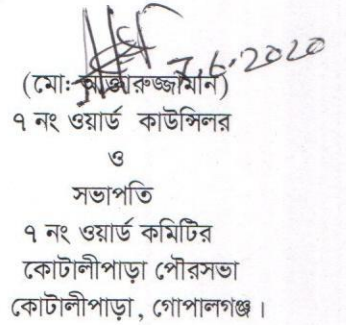 7.6.2020
(মো:-
৭ নং ওয়ার্ড কাউন্সিলর
ও
সভাপতি
৭ নং ওয়ার্ড কমিটির
কোটালীপাড়া পৌরসভা
কোটালীপাড়া, গোপালগঞ্জ।